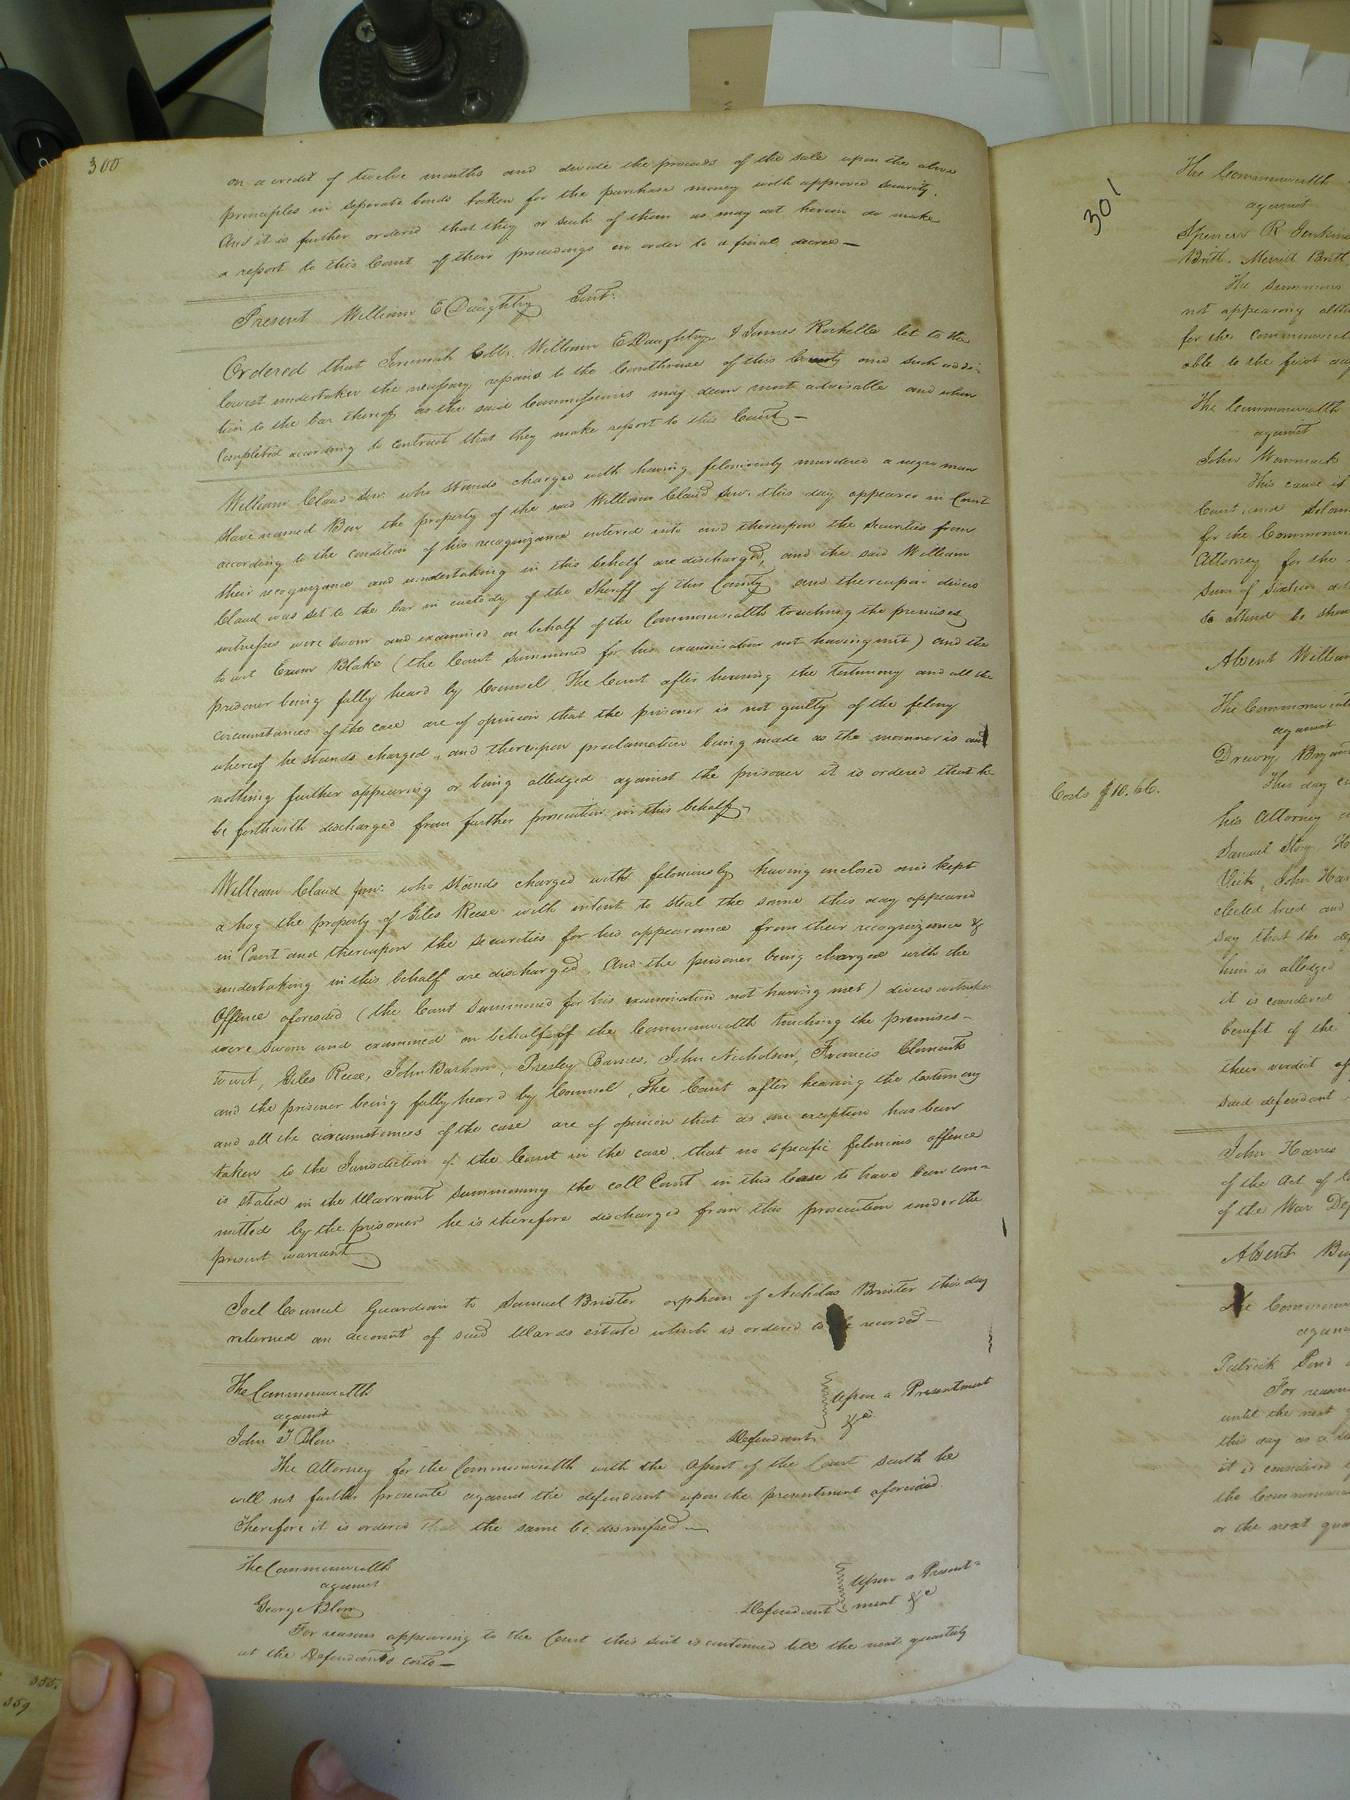 300
on a credit of twelve months and divide the proceeds of the sale upon the above
principles in separate bonds taken for the purchase money with approved security.
And it is further ordered that they or such of them as may act herein do make
a report to this Court of their proceedings in order to a final decree—
Present William E Daughtry Gent.
Ordered that Jeremiah Cobb, William E Daughtry & James Rochelle let to the
lowest undertaker the necessary repairs to the Courthouse of this County and such addi-
tion to the bar thereof as the said Commissioners may deem most advisable and when
completed according to contract that they make report to this Court—
William Claud Senr. who stands charged with having feloniously murdered a negro man
slave named Ben the property of the said William Claud Senr. this day appeared in Court
according to the condition of his recognizance entered into and thereupon the securities from
their recognizance and undertaking in this behalf are discharged, and the said William
Claud was set to the bar in custody of the Sheriff of this County and thereupon divers
witnesses were sworn and examined on behalf of the Commonwealth touching the premises
to wit Exum Blake (the Court summoned for his examination not having met) and the
prisoner being fully heard by Counsel. The Court after hearing the testimony and all the
circumstances of the case are of opinion that the prisoner is not guilty of the felony
whereof he stands charged, and thereupon proclamation being made as the manner is and
nothing further appearing or being alledged against the prisoner it is ordered that he
be forthwith discharged from further prosecution in this behalf.
William Claud Junr. who stands charged with feloniously having inclosed and kept
a hog the property of Giles Reese with intent to steal the same this day appeared
in Court and thereupon the securities for his appearance from their recognizance &
undertaking in this behalf are discharged. And the prisoner being charged with the
Offence aforesaid (the Court summoned for his examination not having met) divers witnesses
were sworn and examined on behalf of the Commonwealth touching the premises—
to wit, Giles Reese, John Barham, Presley Barnes, John Nicholson, Francis Clements
and the prisoner being fully heard by Counsel, The Court after hearing the testimony
and all the circumstances of the case are of opinion that as an exception has been
taken to the Jurisdiction of the Court in the case, that no specific felonious offence
is stated in the Warrant summoning the call Court in this Case to have been com-
mitted by the prisoner he is therefore discharged from this prosecution under the
present warrant
Joel Council Guardian to Samuel Brister orphan of Nicholas Brister this day
returned an account of said Wards estate which is ordered to be recorded—
The Commonwealth
against
Upon a Presentment
&c
John T Blow
Defendant
The Attorney for the Commonwealth with the assent of the Court saith he
will not further prosecute against the defendant upon the presentment aforesaid.
Therefore it is ordered that the same be dismissed—
The Commonwealth
against
Upon a Present-
ment &c
George Blow
Defendant
For reasons appearing to the Court this suit is continued till the next quarterly
at the Defendants costs—
355.
359
301
The Commonwealth
against
Spencer R
Britt. Merrit Britt
The summons
not appearing
for the Commonwealth
able to the first
The Commonwealth
against
John Wommack
This cause
Court and
for the Commonwealth
Attorney for the
Sum of Sixteen
to attend to
Absent William
The Commonwealth
against
Drewry
Costs $10.66.
This day
his Attorney
Samuel
Vick, John
elected tried and
say that the
him is alledged
it is considered
benefit of the
their verdict
said defendant
John Harris
of the Act of
of the War
Absent
The
against
Patrick
For reasons
until the next
this day as a
it is considered
the Commonwealth
or the next